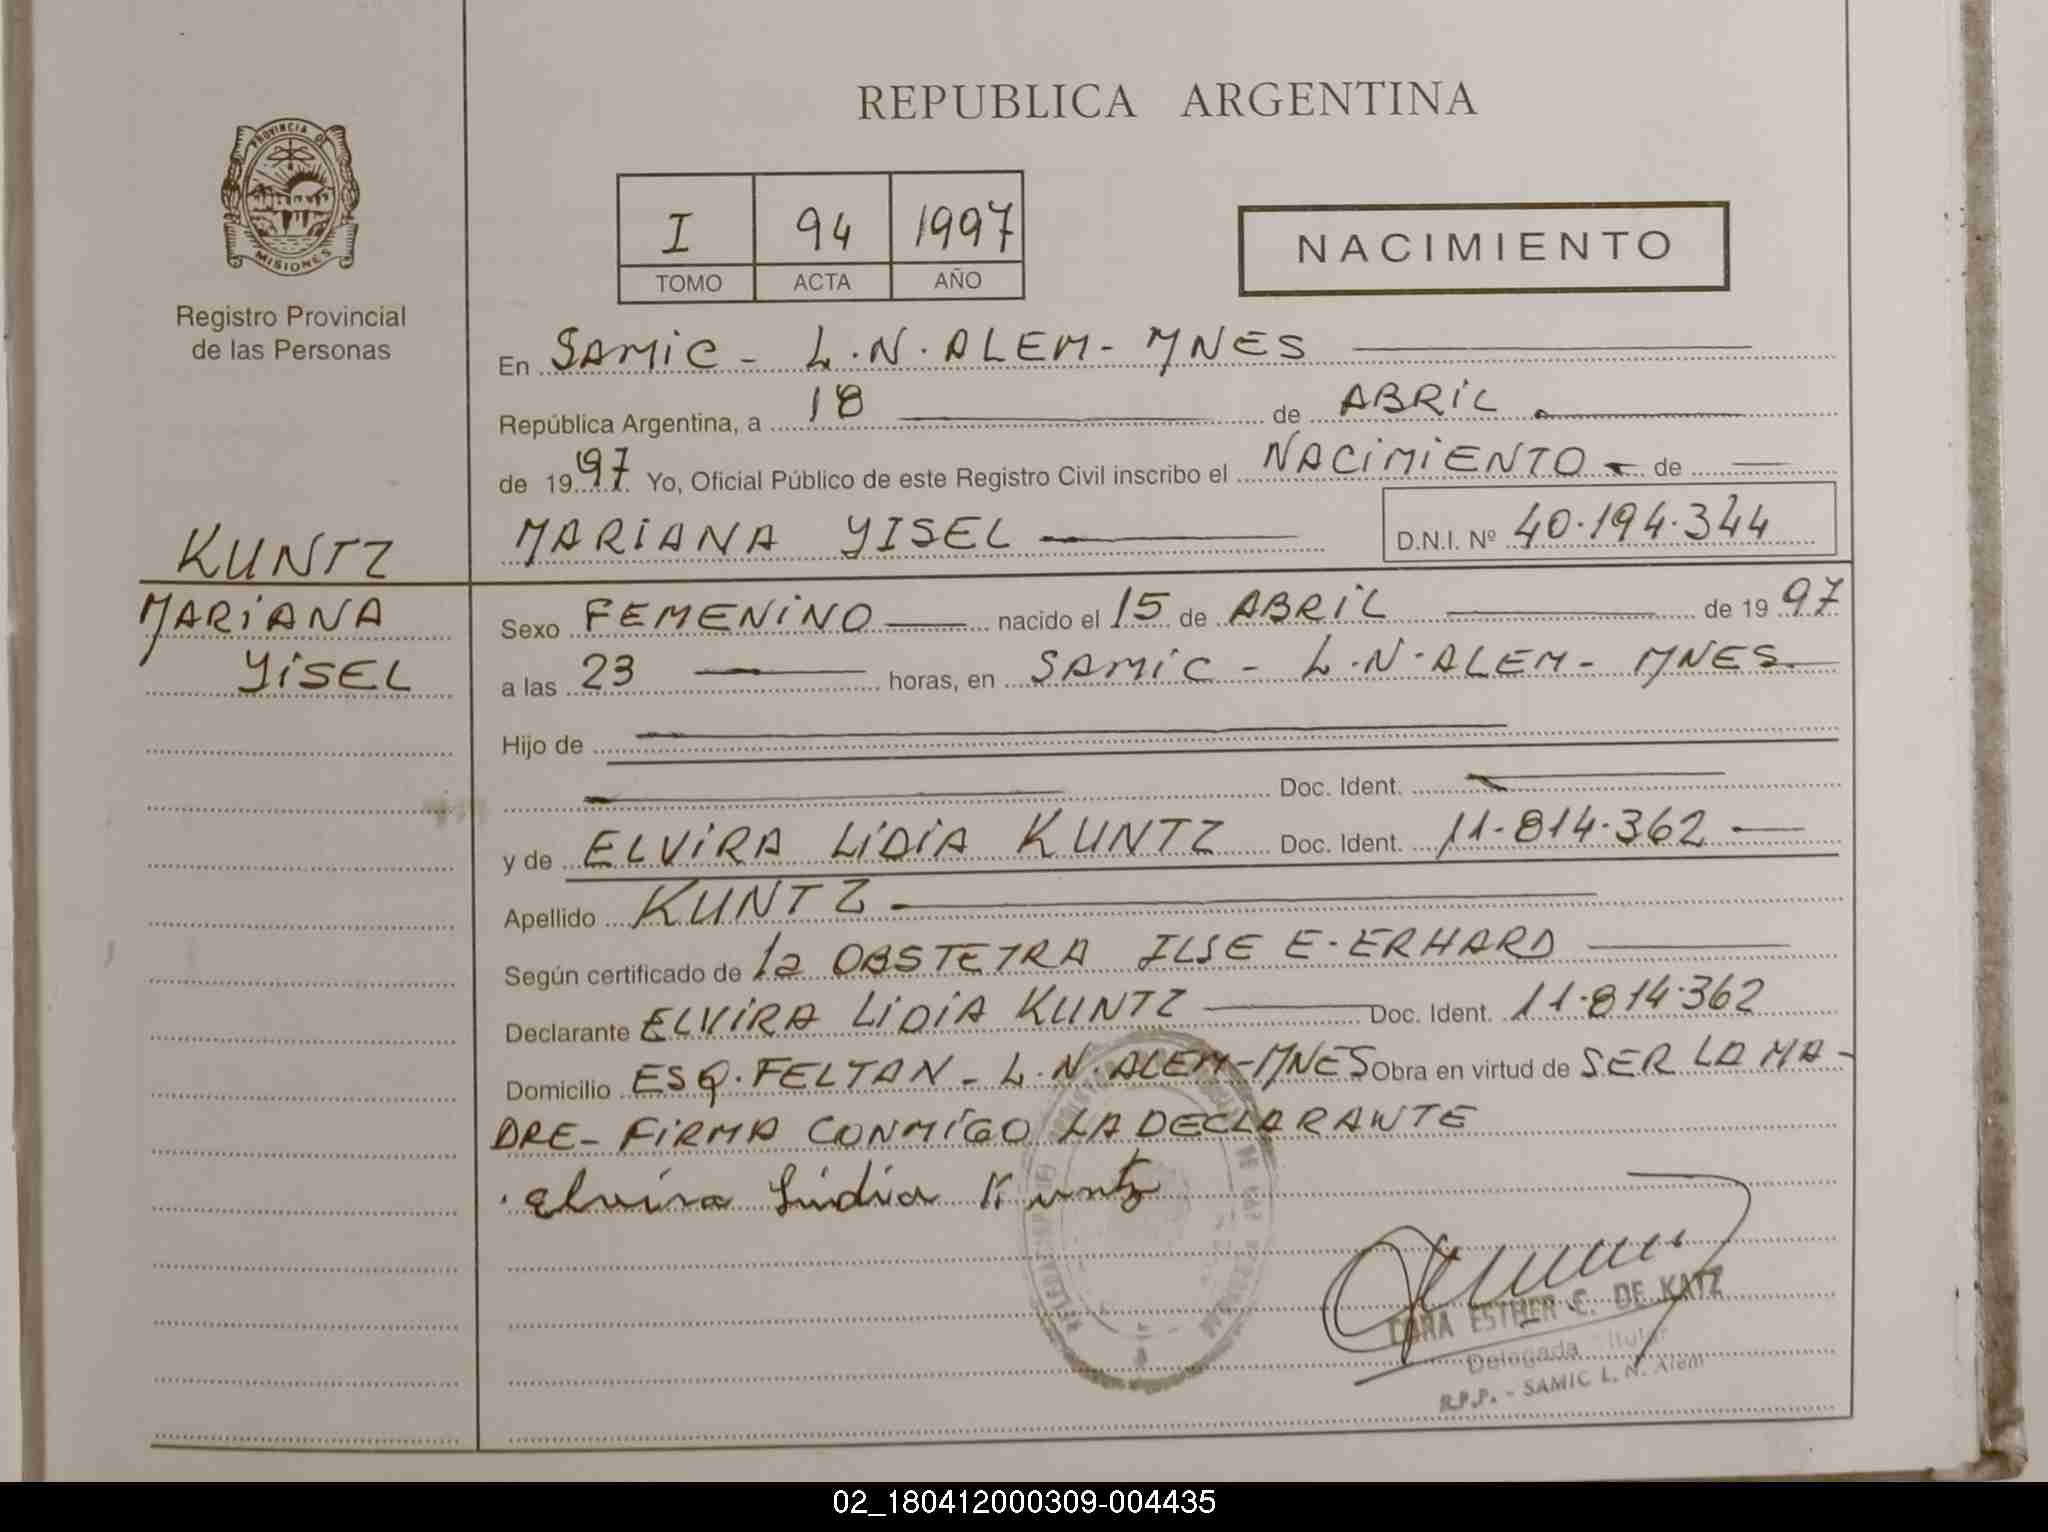 REPUBLICA ARGENTINA
PROVINCIA DE
MISIONES
Registro Provincial
de las Personas
I 94 1997
TOMO ACTA AÑO
NACIMIENTO
En SAMIC - L.N. ALEM - MNES
República Argentina, a 18 de ABRIL
de 1997 Yo, Oficial Público de este Registro Civil inscribo el NACIMIENTO de
MARIANA YISEL D.N.I. Nº 40.194.344
KUNTZ
MARIANA
YISEL
Sexo FEMENINO nacido el 15 de ABRIL de 1997
a las 23 horas, en SAMIC - L.N. ALEM - MNES
Hijo de
Doc. Ident.
y de ELVIRA LIDIA KUNTZ Doc. Ident. 11.814.362
Apellido KUNTZ
Según certificado de la OBSTETRA ILSE E. ERHARD
Declarante ELVIRA LIDIA KUNTZ Doc. Ident. 11.814.362
Domicilio ESQ. FELTAN - L.N. ALEM - MNES Obra en virtud de SER LA MA-
DRE - FIRMA CONMIGO LA DECLARANTE
Elvira Lidia Kuntz
ESTHER C. DE KATZ
Delegada Titular
R.P.P. - SAMIC L. N. Alem
02_180412000309-004435